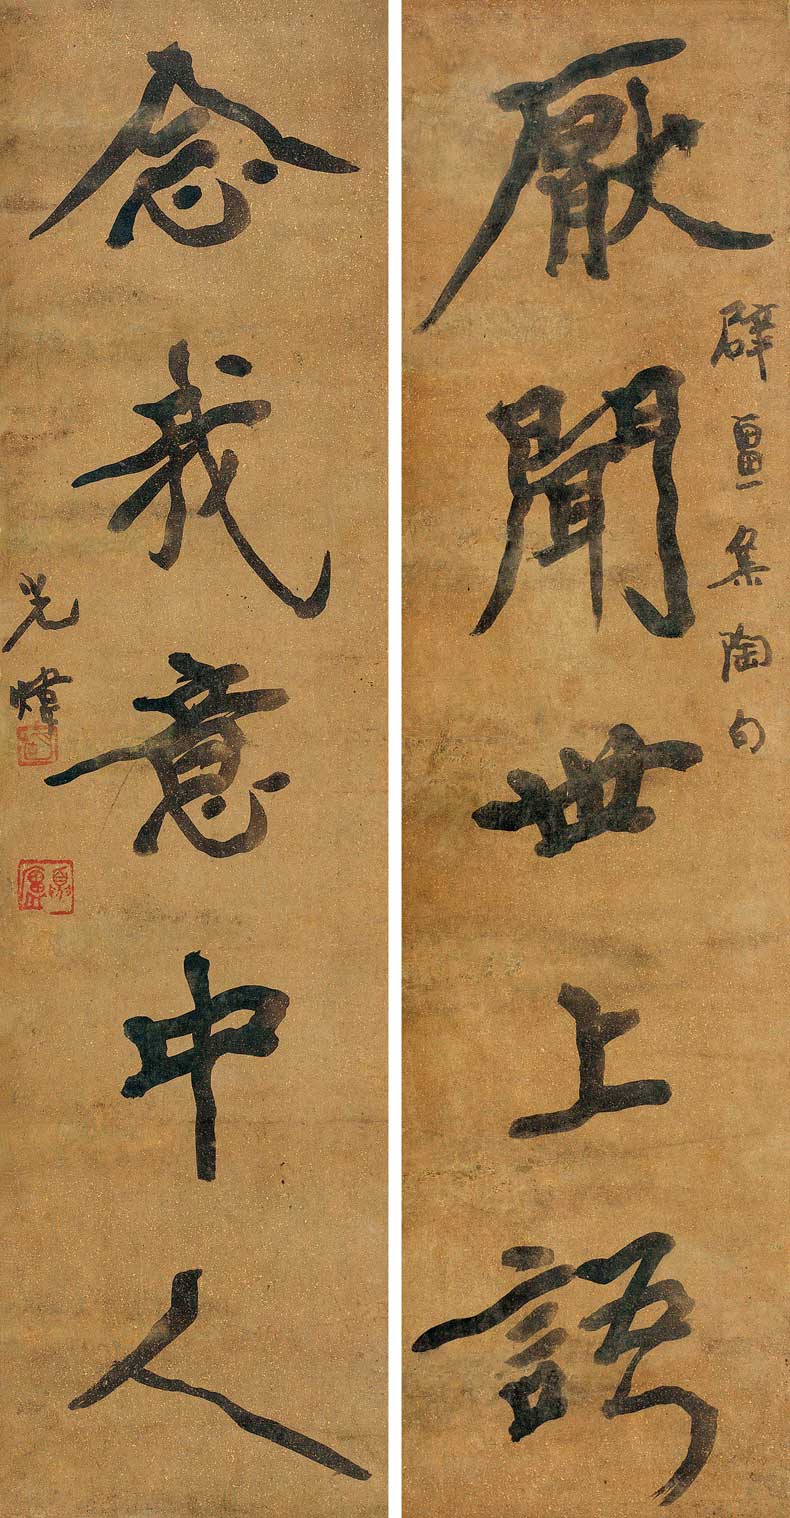 厭聞世上語
辟畺集陶句
念我意中人
光煒